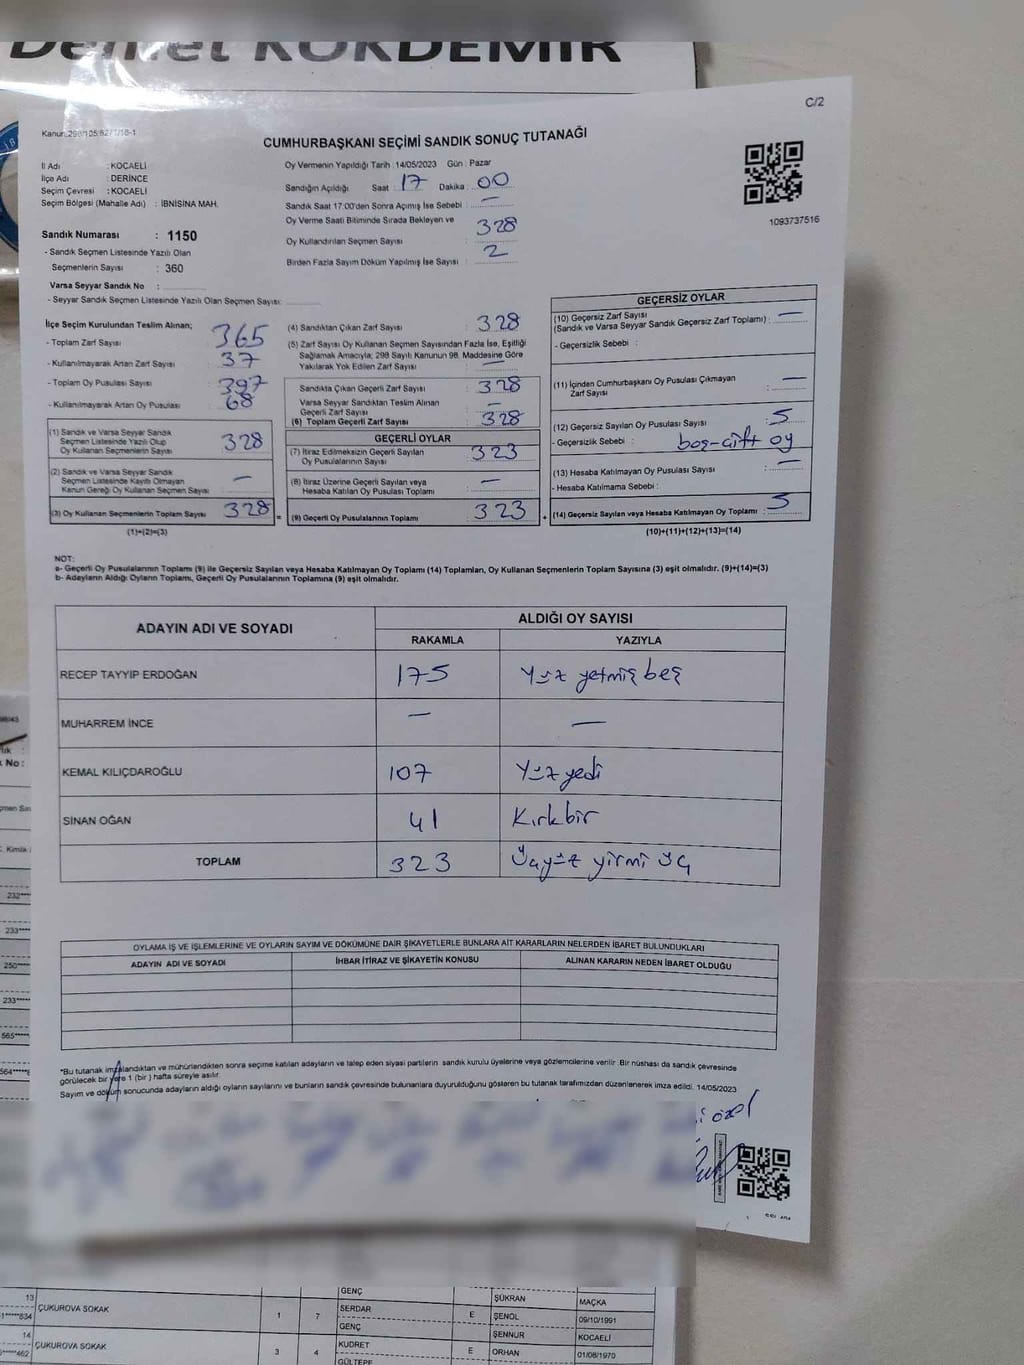 Demet KÖKDEMİR
C/2
Kanun:298/105.627/1/16-1
CUMHURBAŞKANI SEÇİMİ SANDIK SONUÇ TUTANAĞI
İl Adı : KOCAELİ
İlçe Adı : DERİNCE
Seçim Çevresi : KOCAELİ
Seçim Bölgesi (Mahalle Adı) : İBNİSİNA MAH.
Oy Vermenin Yapıldığı Tarih : 14/05/2023 Gün : Pazar
Sandığın Açıldığı Saat 17 Dakika : 00
Sandık Saat 17:00'den Sonra Açımış İse Sebebi : —
Oy Verme Saati Bitiminde Sırada Bekleyen ve
Oy Kullandırılan Seçmen Sayısı 328
Birden Fazla Sayım Döküm Yapılmış İse Sayısı : 2
1093737516
Sandık Numarası : 1150
- Sandık Seçmen Listesinde Yazılı Olan
Seçmenlerin Sayısı : 360
Varsa Seyyar Sandık No :
- Seyyar Sandık Seçmen Listesinde Yazılı Olan Seçmen Sayısı:
İlçe Seçim Kurulundan Teslim Alınan;
- Toplam Zarf Sayısı 365
- Kullanılmayarak Artan Zarf Sayısı : 37
- Toplam Oy Pusulası Sayısı 397
- Kullanılmayarak Artan Oy Pusulası : 68
(1) Sandık ve Varsa Seyyar Sandık
Seçmen Listesinde Yazılı Olup
Oy Kullanan Seçmenlerin Sayısı : 328
(2) Sandık ve Varsa Seyyar Sandık
Seçmen Listesinde Kayıtlı Olmayan
Kanun Gereği Oy Kullanan Seçmen Sayısı —
(3) Oy Kullanan Seçmenlerin Toplam Sayısı 328
(1)+(2)=(3)
(4) Sandıktan Çıkan Zarf Sayısı : 328
(5) Zarf Sayısı Oy Kullanan Seçmen Sayısından Fazla İse, Eşitliği
Sağlamak Amacıyla; 298 Sayılı Kanunun 98. Maddesine Göre
Yakılarak Yok Edilen Zarf Sayısı : —
Sandıkta Çıkan Geçerli Zarf Sayısı : 328
Varsa Seyyar Sandıktan Teslim Alınan
Geçerli Zarf Sayısı : —
(6) Toplam Geçerli Zarf Sayısı : 328
GEÇERLİ OYLAR
(7) İtiraz Edilmeksizin Geçerli Sayılan
Oy Pusulalarının Sayısı : 323
(8) İtiraz Üzerine Geçerli Sayılan veya
Hesaba Katılan Oy Pusulası Toplamı : —
(9) Geçerli Oy Pusulalarının Toplamı : 323
GEÇERSİZ OYLAR
(10) Geçersiz Zarf Sayısı
(Sandık ve Varsa Seyyar Sandık Geçersiz Zarf Toplamı) : —
- Geçersizlik Sebebi :
(11) İçinden Cumhurbaşkanı Oy Pusulası Çıkmayan
Zarf Sayısı : —
(12) Geçersiz Sayılan Oy Pusulası Sayısı : 5
- Geçersizlik Sebebi : boş-çift oy
(13) Hesaba Katılmayan Oy Pusulası Sayısı : —
- Hesaba Katılmama Sebebi :
(14) Geçersiz Sayılan veya Hesaba Katılmayan Oy Toplamı : 5
(10)+(11)+(12)+(13)=(14)
NOT:
a- Geçerli Oy Pusulalarının Toplamı (9) ile Geçersiz Sayılan veya Hesaba Katılmayan Oy Toplamı (14) Toplamları, Oy Kullanan Seçmenlerin Toplam Sayısına (3) eşit olmalıdır. (9)+(14)=(3)
b- Adayların Aldığı Oyların Toplamı, Geçerli Oy Pusulalarının Toplamına (9) eşit olmalıdır.
ADAYIN ADI VE SOYADI
ALDIĞI OY SAYISI
RAKAMLA YAZIYLA
RECEP TAYYIP ERDOĞAN 175 Yüz yetmiş beş
MUHARREM İNCE — —
KEMAL KILIÇDAROĞLU 107 Yüz yedi
SİNAN OĞAN 41 Kırkbir
TOPLAM 323 Üçyüz yirmi üç
OYLAMA İŞ VE İŞLEMLERİNE VE OYLARIN SAYIM VE DÖKÜMÜNE DAİR ŞİKAYETLERLE BUNLARA AİT KARARLARIN NELERDEN İBARET BULUNDUKLARI
ADAYIN ADI VE SOYADI İHBAR İTİRAZ VE ŞİKAYETİN KONUSU ALINAN KARARIN NEDEN İBARET OLDUĞU
*Bu tutanak imzalandıktan ve mühürlendikten sonra seçime katılan adayların ve talep eden siyasi partilerin sandık kurulu üyelerine veya gözlemcilerine verilir. Bir nüshası da sandık çevresinde
görülecek bir yere 1 (bir) hafta süreyle asılır.
Sayım ve döküm sonucunda adayların aldığı oyların sayılarını ve bunların sandık çevresinde bulunanlara duyurulduğunu gösteren bu tutanak tarafımızdan düzenlenerek imza edildi. 14/05/2023
özel
98/43
No :
Kimlik
232****
233****
250****
233****
565****
564****
13 ÇUKUROVA SOKAK 1 7 GENÇ ŞÜKRAN MAÇKA
1*****834 SERDAR E ŞENOL 09/10/1991
14 ÇUKUROVA SOKAK 3 4 GENÇ ŞENNUR KOCAELİ
*****462 KUDRET E ORHAN 01/08/1970
GÜLTEPE